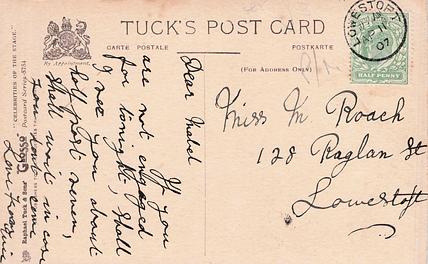 TUCK'S POST CARD
CARTE POSTALE
POSTKARTE
(FOR ADDRESS ONLY)
By Appointment.
"CELEBRITIES OF THE STAGE."
Postcard Series 5154
Glosso
Raphael Tuck & Sons'
LOWESTOFT
07
HALF PENNY
Dear Mabel
If you
are not engaged
for tonight, shall
I see you about
half past seven,
shall wait in case
you don't come
Love from
Miss M. Roach
128 Raglan St
Lowestoft